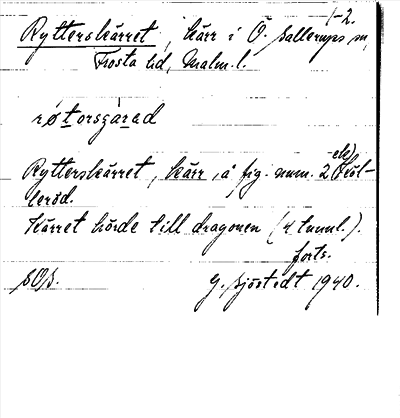 1-2.
Rytterskärret, kärr i Ö. Sallerups sn,
Frosta hd, Malm. l.
røtorsgarad
Rytterskärret, kärr, å fig. num. 2 Sköt-
leröd.
Kärret hörde till dragonen (4 tunnl.).
forts.
SOB. G. Sjöstedt 1940.